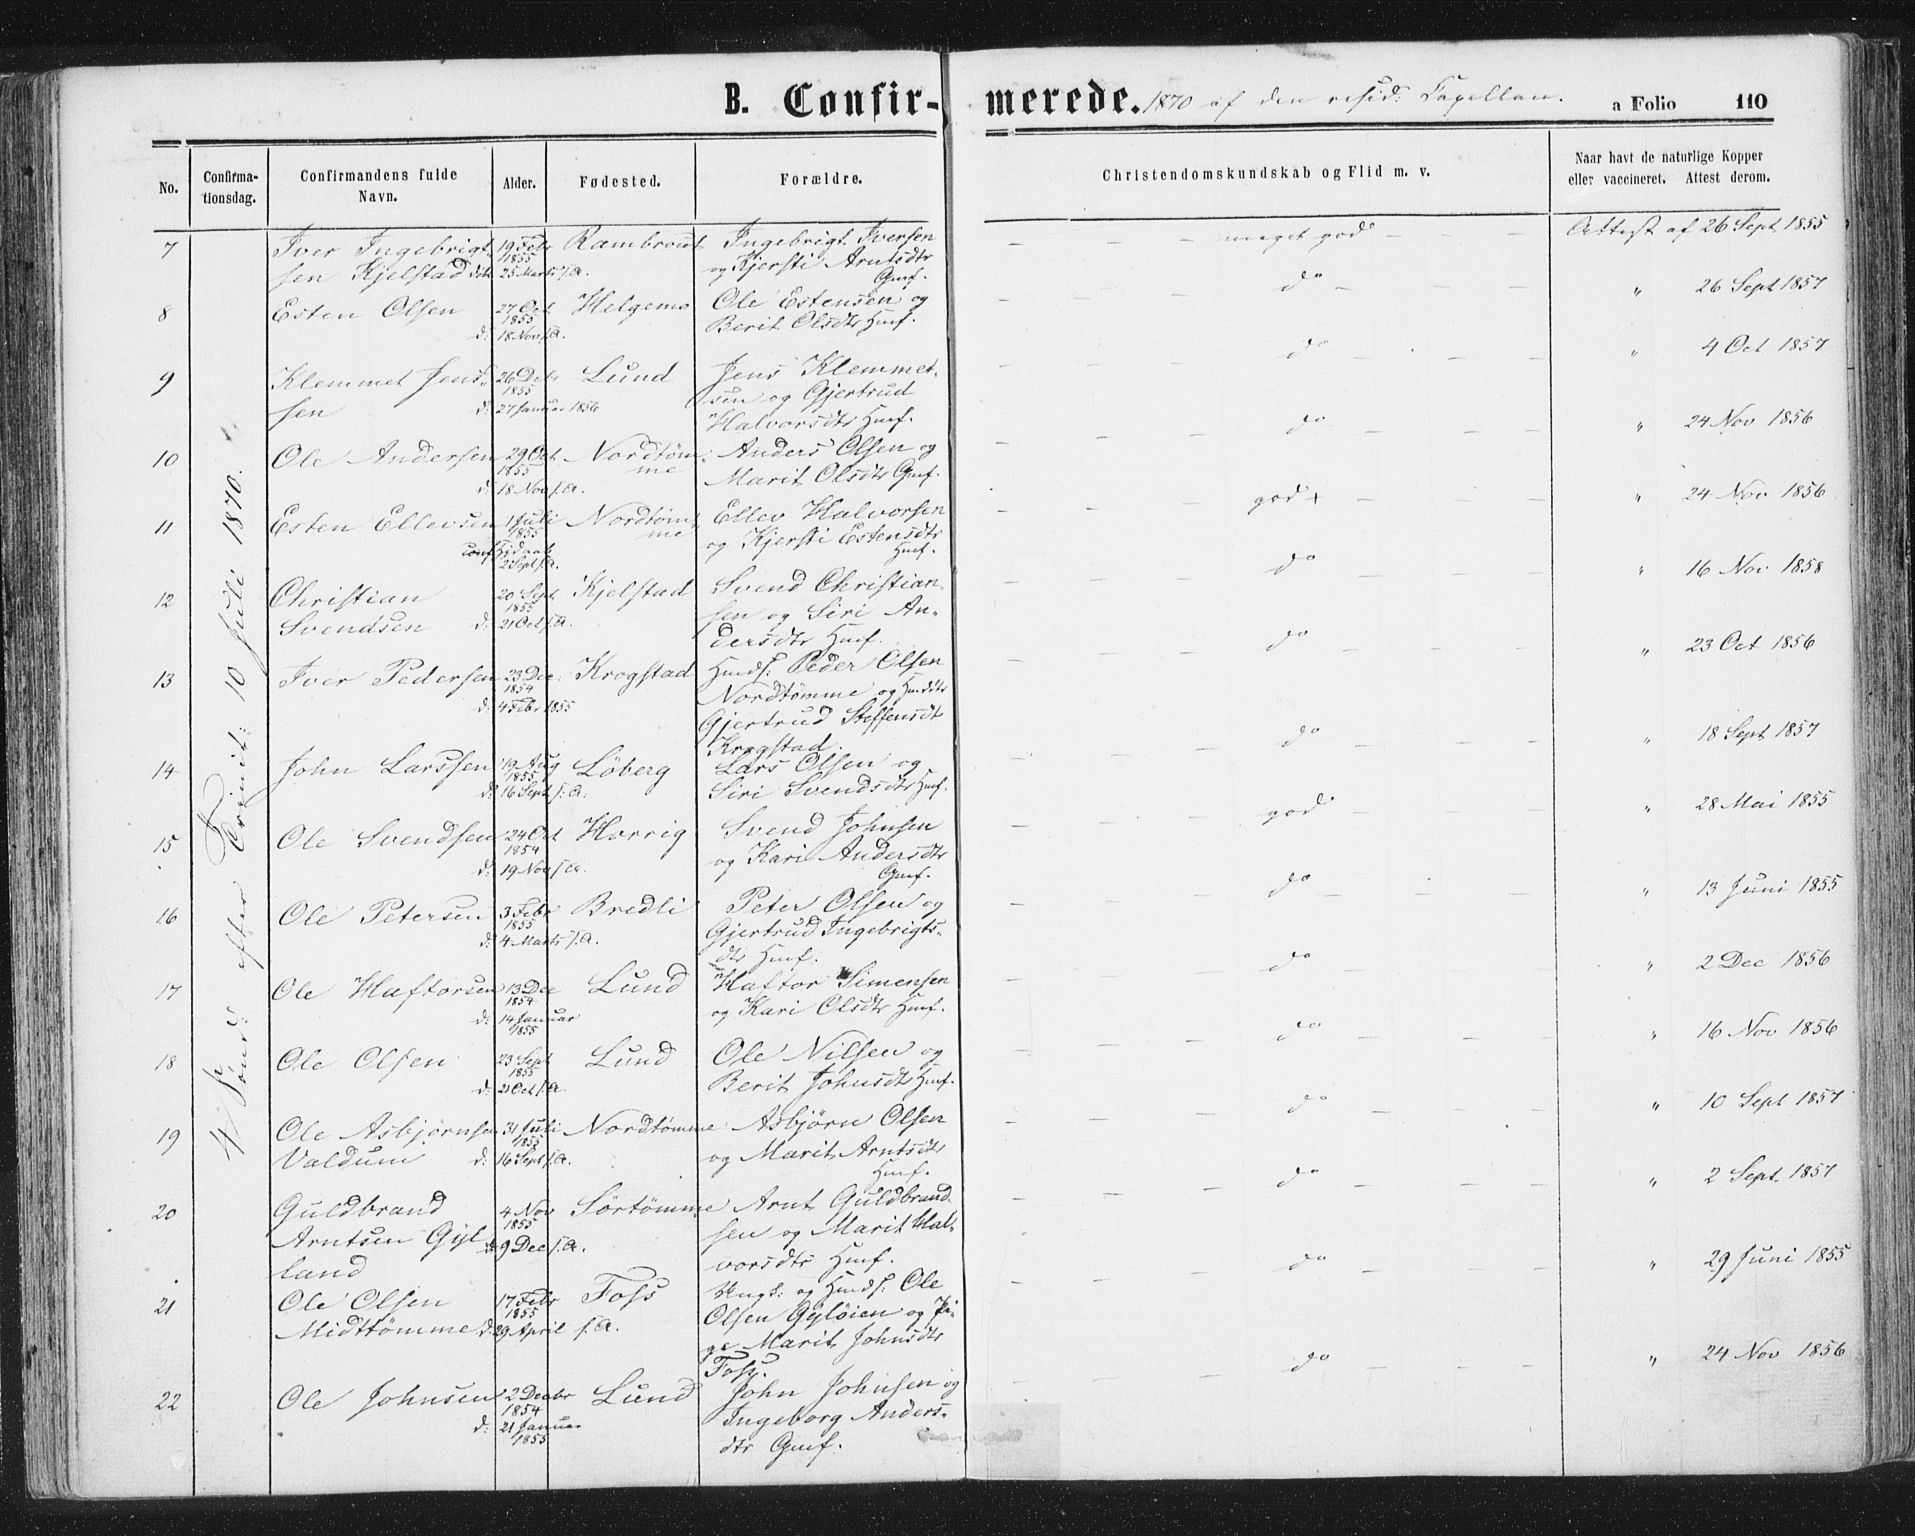 B. Confirmerede. 1870 af den resid: Capellan. a Folio 110
No. Confirmationsdag. Confirmandens fulde Navn. Alder. Fødested. Forældre. Christendomskundskab og Flid m. v. Naar havt de naturlige Kopper eller vaccineret. Attest derom.
4 Sønd: efter Trinit: 10 Juli 1870.
7 Iver Ingebrigt- 19 Febr Rambraut Ingebrigt Iversen — — — meget god — — — Attest af 26 Sept 1855
1855
sen Kjelstad døbt 25 Marts s.A. og Kjersti Arntsdtr
Gmf.
8 Esten Olsen 27 Oct Helgemo Ole Estensen og — — — do — — — " 26 Sept 1857
1855 Berit Olsdtr Hmf.
d: 18 Nov s.A.
9 Klemmet Jens- 26 Debr Lund Jens Klemmet- — — — do — — — " 4 Oct 1857
1855
sen d: 27 Januar 1856 sen og Gjertrud
Halvorsdtr Hmf.
10 Ole Andersen 29 Oct Nordtøm- Anders Olsen og — — — do — — — " 24 Nov 1856
1855 me Marit Olsdtr Gmf.
d: 18 Nov s.A.
11 Esten Ellevsen 1 Juli Nordtøm- Ellev Halvorsen — — — god + — — — " 24 Nov 1856
1855 me og Kjersti Estensdtr
conf. Hjdaab Hmf.
2 Sept s.A.
12 Christian 20 Sept Kjelstad Svend Christian- — — — do — — — " 16 Nov 1858
1855 sen og Siri An-
Svendsen d: 21 Oct s.A. dersdtr Hmf.
13 Iver Pedersen 23 Dec: Krogstad Hmds: Peder Olsen — — — do — — — " 23 Oct 1856
1854 Nordtømme og Hmddtr
d: 4 Febr 1855 Gjertrud Steffensdtr
Krogstad.
14 John Larssen 19 Aug Løberg Lars Olsen og — — — do — — — " 18 Sept 1857
1855
d: 16 Sept s:A: Siri Svendsdtr Hmf.
15 Ole Svendsen 24 Oct Horrig Svend Johnsen — — — god — — — " 28 Mai 1855
1854 og Kari Andersdtr
d: 19 Nov s.A. Gmf.
16 Ole Petersen 3 Febr Bredli Peter Olsen og — — — do — — — " 13 Juni 1855
1855 Gjertrud Ingebrigts-
d: 4 Marts s.A. dtr Hmf.
17 Ole Haftorsen 13 Dec Lund Haftor Simensen — — — do — — — " 2 Dec 1856
1854 og Kari Olsdtr Hmf.
d: 14 Januar
1855
18 Ole Olsen 23 Sept Lund Ole Nilsen og — — — do — — — " 16 Nov 1856
1855
d: 21 Oct s.A. Berit Johnsdtr Hmf.
19 Ole Asbjørnsen 31 Juli Nordtømme Asbjørn Olsen — — — do — — — " 10 Sept 1857
1855
Valdum d: 16 Sept s.A. og Marit Arntsdtr
Hmf.
20 Guldbrand 4 Nov Sørtømme Arnt Guldbrand- — — — do — — — " 2 Sept 1857
1855
Arntsen Gyl- d: 9 Dec s.A. sen og Marit Hal-
land vorsdtr Hmf.
21 Ole Olsen 17 Febr Foss Ungk: og Hmds: Ole — — — do — — — " 29 Juni 1855
1855 Olsen Gyløien og Pi-
Midttømme d: 29 April s.A. ge Marit Johnsdtr
Foss.
22 Ole Johnsen 2 Decbr Lund John Johnsen og — — — do — — — " 24 Nov 1856
1854 Ingeborg Anders-
d: 21 Januar dtr Gmf.
1855